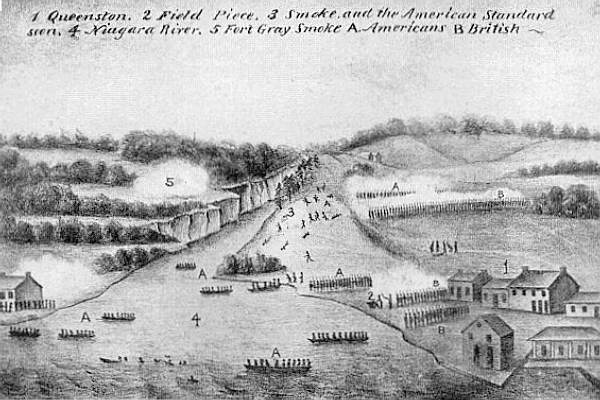 1 Queenston. 2 Field Piece. 3 Smoke, and the American Standard
seen. 4 Niagara River. 5 Fort Gray Smoke A. Americans B British
5
A
B
3
1
A
A
2
B
B
A
4
A